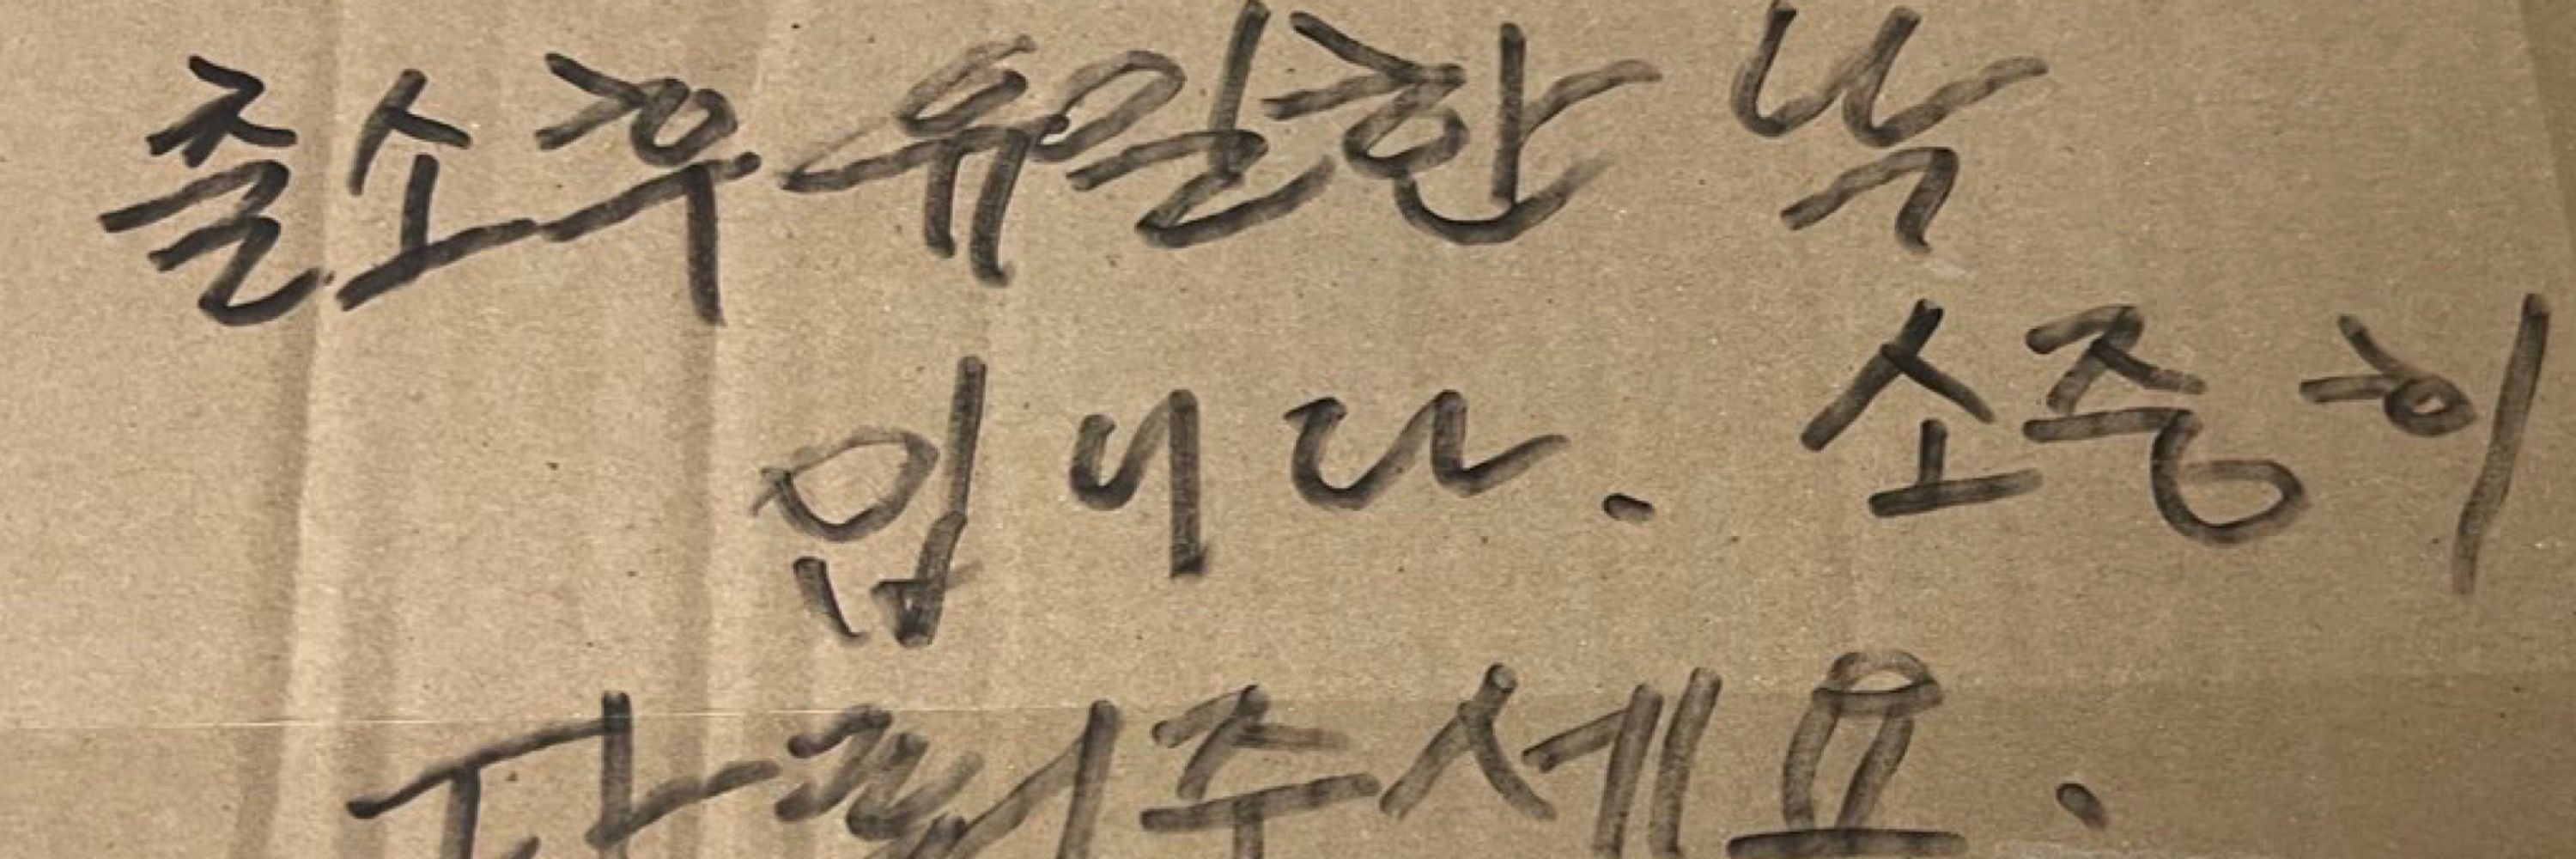 출소후 유일한 낙
입니다. 소중히
다뤄주세요.